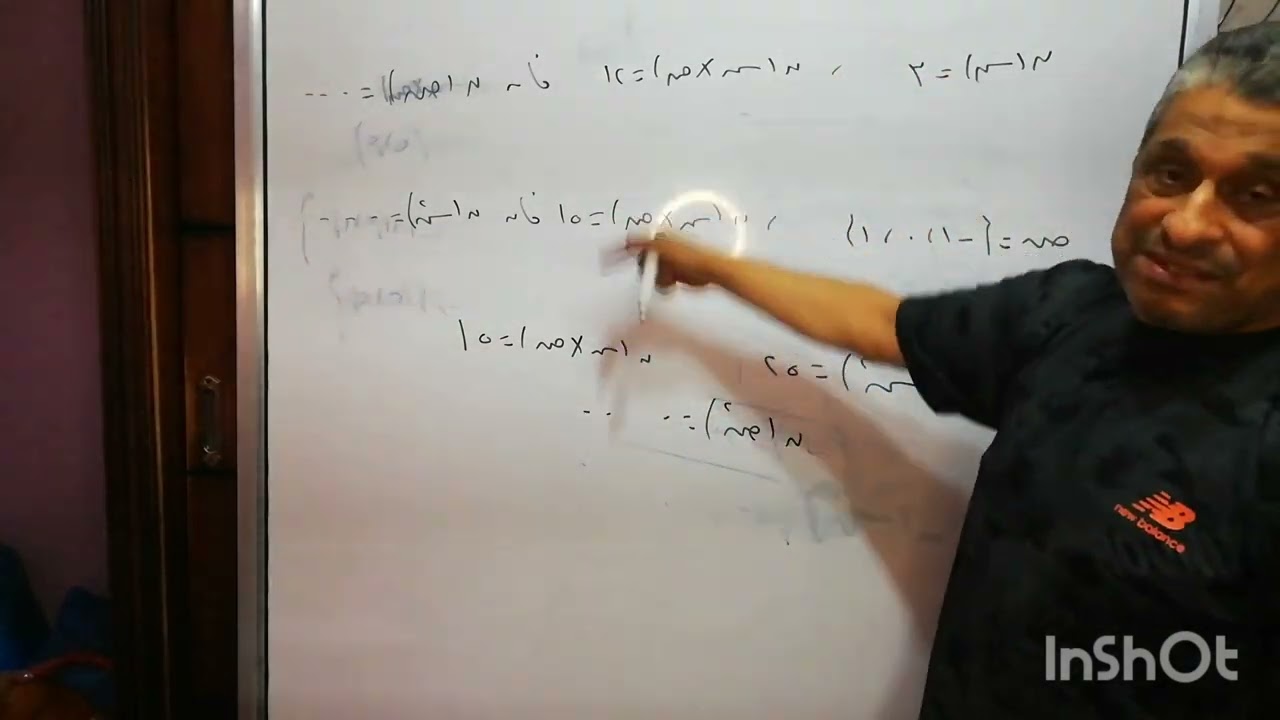 ن(س) = ٣ ، ن(س×ص) = ١٢ فإن ن(ص) = ....
ص = {-١، ٠، ١} ، ن(س×ص) = ١٥ فإن ن(س²) =
(س²) = ٢٥ ن(س×ص) = ١٥
ن(ص²) = ....
new balance
InShOt